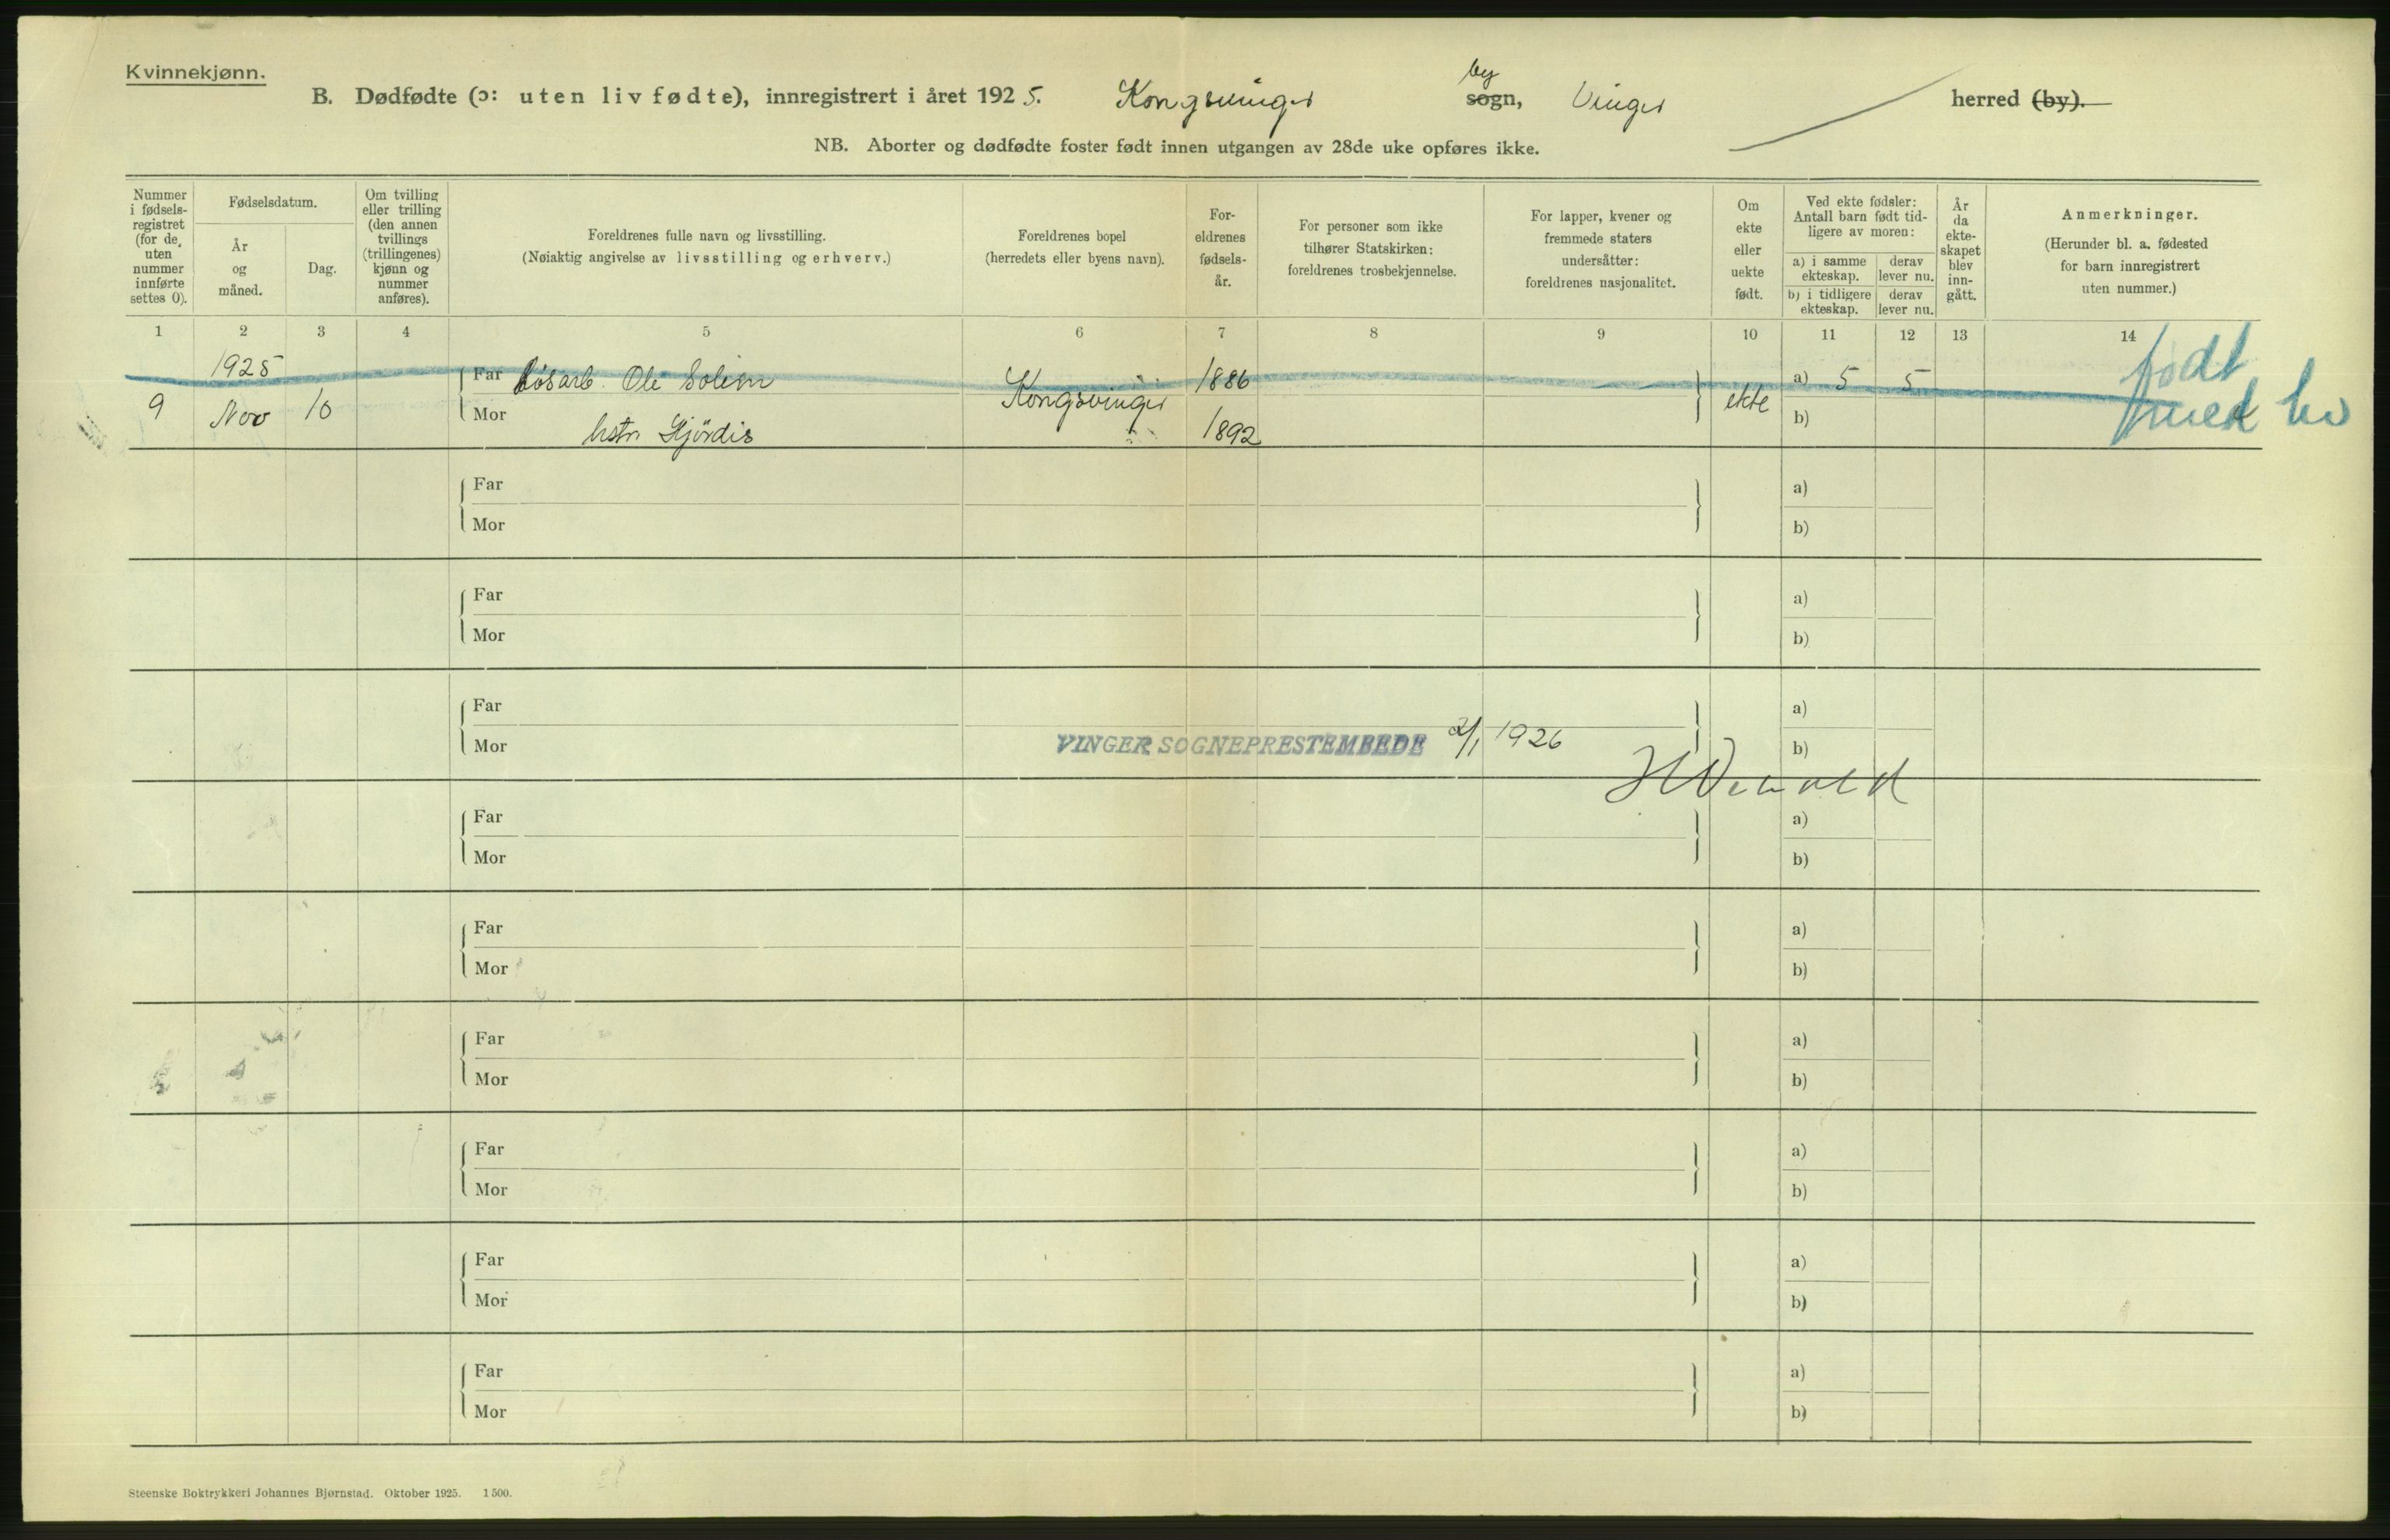 Kvinnekjønn.
B. Dødfødte (ɔ: uten liv fødte), innregistrert i året 1925. Kongsvinger by sogn, Vinger herred (by).
NB. Aborter og dødfødte foster født innen utgangen av 28de uke opføres ikke.
Nummer i fødsels-registret (for de, uten nummer innførte settes 0).
Fødselsdatum.
År og måned.
Dag.
Om tvilling eller trilling (den annen tvillings (trillingenes) kjønn og nummer anføres).
Foreldrenes fulle navn og livsstilling.
(Nøiaktig angivelse av livsstilling og erhverv.)
Foreldrenes bopel
(herredets eller byens navn).
For-eldrenes fødsels-år.
For personer som ikke tilhører Statskirken: foreldrenes trosbekjennelse.
For lapper, kvener og fremmede staters undersåtter: foreldrenes nasjonalitet.
Om ekte eller uekte født.
Ved ekte fødsler: Antall barn født tid-ligere av moren:
a) i samme ekteskap. derav lever nu.
b) i tidligere ekteskap. derav lever nu.
År da ekte-skapet blev inn-gått.
Anmerkninger.
(Herunder bl. a. fødested for barn innregistrert uten nummer.)
1 2 3 4 5 6 7 8 9 10 11 12 13 14
1925 Far Løsarb. Ole Solem Kongsvinger 1886 a) 5 5 født
9 Nov 10 Mor hstr Hjördis 1892 ekte b) med liv
Far a)
Mor b)
Far a)
Mor b)
Far a)
Mor VINGER SOGNEPRESTEMBEDE 2/1 1926 b)
Far a)
Mor b)
Far a)
Mor b)
Far a)
Mor b)
Far a)
Mor b)
Far a)
Mor b)
Far a)
Mor b)
Steenske Boktrykkeri Johannes Bjørnstad. Oktober 1925. 1500.